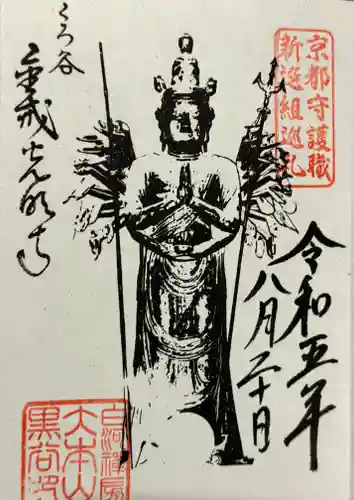 京都守護職
新選組巡礼
令和五年
八月二十日
くろ谷
金戒光明寺
白河禅房
大本山
黒谷